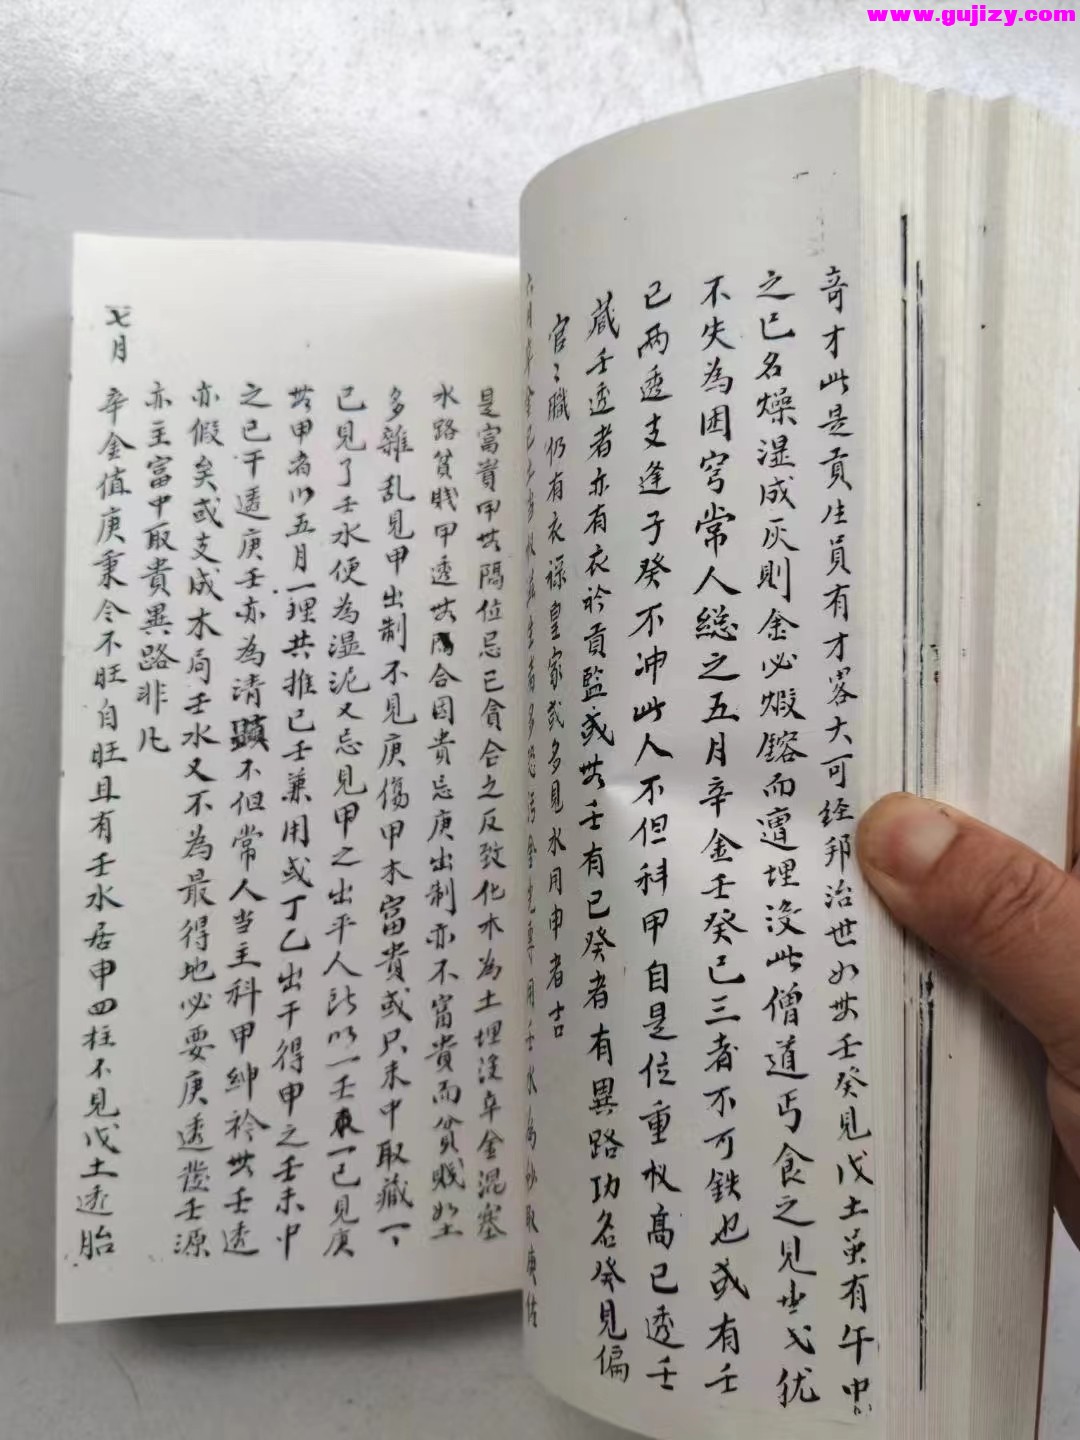 www.gujizy.com
奇才此是貢生員有才畧大可經邦治世如無壬癸見戊土虽有午中
之已名燥湿成灰則金必煅鎔而遭埋没此僧道丐食之見坐戈犹
不失為困穹常人総之五月辛金壬癸已三者不可鉄也或有壬
已两透支逢子癸不冲此人不但科甲自是位重权高已透壬
藏壬透者亦有衣衿貢監或無壬有已癸者有異路功名癸見偏
官〻職仍有衣禄皇家或多見水用申者吉
六月辛金已土当权
多恐污金先專用壬水為妙取庚佐
是富貴甲無隔位忌已貪合之反致化木為土埋没辛金混塞
水路貧賎甲透無隔合困貴忌庚出制亦不富貴而貧賎坐
多雜乱見甲出制不見庚傷甲木富貴或只未中取藏一丶
已見了壬水便為湿泥又忌見甲之出平人所以一壬一已見庚
無甲者以五月一理共推已壬兼用或丁乙出干得甲之壬未中
之已干透庚壬亦為清顕不但常人当主科甲紳衿無壬透
亦假矣或支成木局壬水又不為最得地必要庚透發壬源
亦主富中取貴異路非凡
七月
辛金值庚秉令不旺自旺且有壬水居申四柱不見戊土透胎